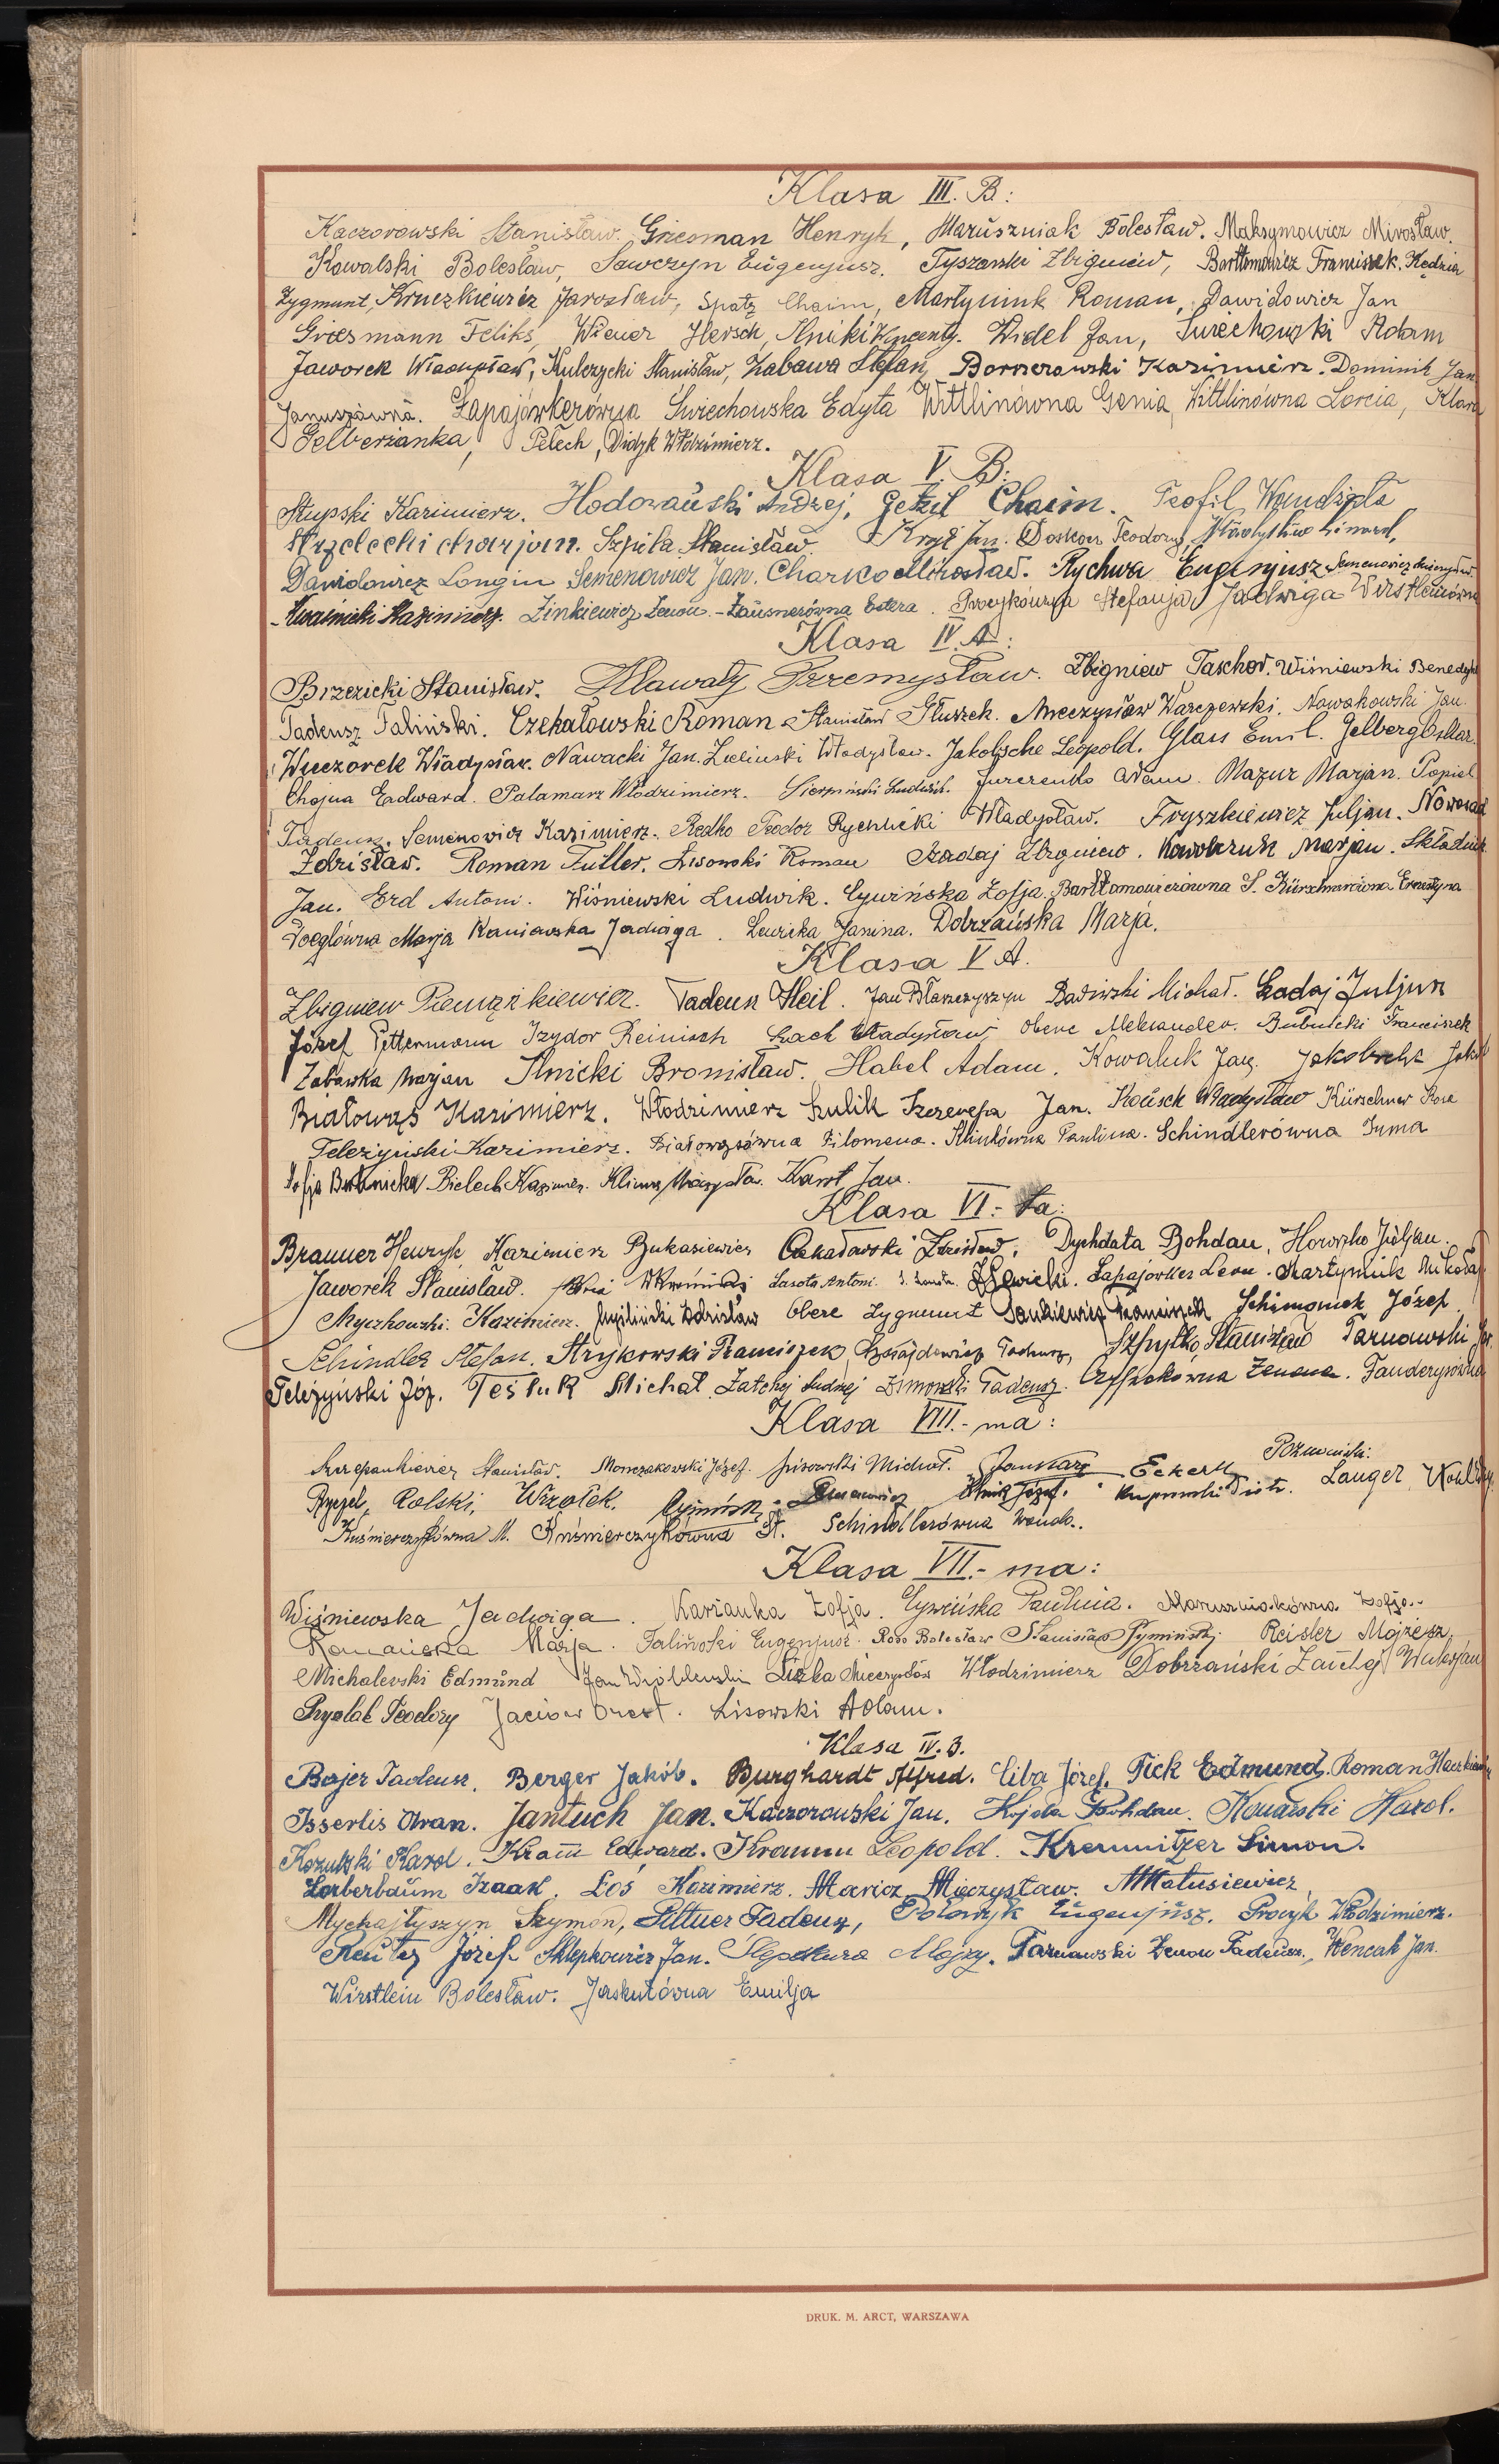 Klasa III. B:
Kaczorowski Stanisław. Griesman Henryk, Maruszniak Bolesław. Maksymowicz Mirosław.
Kowalski Bolesław, Sawczyn Eugenjusz. Tyszarski Zbigniew, Bartłomowicz Franciszek. Kędzia
Zygmunt, Kruczkiewicz Jarosław, Spatz Chaim, Martyniuk Roman, Dawidowicz Jan
Griesmann Feliks, Wiener Hersch, Ilnicki Wincenty. Widel Jan, Świechowski Adam
Jaworek Władysław, Kulczycki Stanisław, Zabawa Stefan, Borszerowski Kazimierz. Dominik Jan
Januszówna. Łapajówkerówna Świechowska Edyta Wittlinówna Genia, Wittlinówna Lorcia, Klara
Gelberżanka, Pełech, Didyk Włodzimierz.
Klasa V. B:
Słupski Kazimierz. Hodowański Andrzej, Getzil Chaim. Teofil Wandzyla
Strzelecki Marjan. Szpila Stanisław. Kryż Jan. Doskocz Teodozy,
Dawidowicz Longin Semenowicz Jan. Charko Mirosław. Rychwa Eugenjusz Semenowicz
Kwaśnicki Kazimierz. Zinkiewicz Zenon. - Zausnerówna Estera. Procykówna Stefanja Jadwiga Wirstleinówna
Klasa IV. A:
Brzezicki Stanisław. Hławaty Przemysław. Zbigniew Taschor. Wiśniewski Benedykt
Tadeusz Faliński. Czekałowski Roman Stanisław Głuszek. Mieczysław Warczewski. Nowakowski Jan.
Wieczorek Władysław. Nawacki Jan. Zieliński Władysław. Jakobsche Leopold. Glass Emil. Gelberg Oskar.
Chojna Edward. Palamarz Włodzimierz. Sierpiński Ludwik. Jurczenko Adam. Mazur Marjan. Popiel
Tadeusz. Semenowicz Kazimierz. Redko Teodor Rychlicki Władysław. Fryszkiewicz Juljan. Noworad
Zdzisław. Roman Fuller. Lisowski Roman Szadaj Zbigniew. Kowalczuk Marjan. Składnik
Jan. Erd Antoni. Wiśniewski Ludwik. Cywińska Zofja. Bartłomowiczówna S. Kürschnerówna Ernestyna
Voeglówna Marja Kaniawska Jadwiga. Lewicka Janina. Dobrzańska Marja.
Klasa V A.
Zbigniew Pieniążkiewicz. Tadeusz Heil. Jan Błaszczyszyn Badiwski Michał. Ładaj Juljusz
Józef Pettermann Izydor Reinisch Łach Władysław Obere Aleksander. Bubnicki Franciszek
Zabawka Marjan Ilnicki Bronisław. Habel Adam. Kowaluk Jan. Jakobsche Jakób
Białowąs Kazimierz. Włodzimierz Szulik Szereneja Jan. Kousch Władysław Kürschner Rosa
Teleżyński Kazimierz. Białowąsówna Filomena. Paulina. Schindlerówna Irma
Zofja Bubnicka Bielech Kazimierz. Klima Mieczysław. Kawt Jan.
Klasa VI.- ta:
Brauner Henryk, Kazimierz Bukasiewicz Czekałowski Zdzisław. Dychdała Bohdan, Horoszko Juljan.
Jaworek Stanisław. Lasota Antoni. Lewicki. Łapajowker Leon. Martyniuk Mikołaj
Myczkowski Kazimierz. Zdzisław Obere Zygmunt Pankiewicz Franciszek Schimonek Józef
Schindler Stefan. Strykowski Franciszek, Szajdewicz Tadeusz, Szpytko Stanisław Tarnawski
Teleżyński Józ. Tesluk Michał Zatchej Andrzej Zimowski Tadeusz. Czyszakówna Zenona. Fanderysówna
Klasa VIII.- ma:
Szczepankiewicz Stanisław. Monczakowski Józef. Lisowski Michał. Janusz Eckert Poźniański.
Ryczel, Rolski, Wrzołek. Cymiński Ilnik Józef. Piotr. Langer,
Kuśmierczykówna M. Kuśmierczykówna St. Schindlerówna Wanda.
Klasa VII.- ma:
Wiśniewska Jadwiga. Karżanka Zofja. Cywińska Paulina. Maruszniakówna Zofja.
Romańska Marja. Faliński Eugenjusz. Bolesław Stanisław Tymiński Reisler Mojżesz
Michalewski Edmund Jan Wróblewski Liszka Mieczysław Włodzimierz Dobrzański Zatchej
Przyslak Teodozy Jaciow Orest. Lisowski Adam.
Klasa IV. B.
Bajer Tadeusz. Berger Jakób. Burghardt Alfred. Ciba Józef. Fick Edmund. Roman
Isserlis Aran. Jantuch Jan. Kaczorowski Jan. Kojda Bohdan. Konarski Karol.
Kozulski Karol. Kram Edward. Kramm Leopold. Kremnitzer Simon.
Lorberbaum Izaak. Łoś Kazimierz. Maricz Mieczysław. M Matusiewicz
Mychajłyszyn Szymon, Pittner Tadeusz, Połowyk Eugenjusz. Procyk Włodzimierz.
Reuter Józef Sklepkowicz Jan. Ślepokura Alojzy. Tarnawski Zenon Tadeusz, Wencak Jan.
Wirstlein Bolesław. Jaskutówna Emilja
DRUK. M. ARCT, WARSZAWA